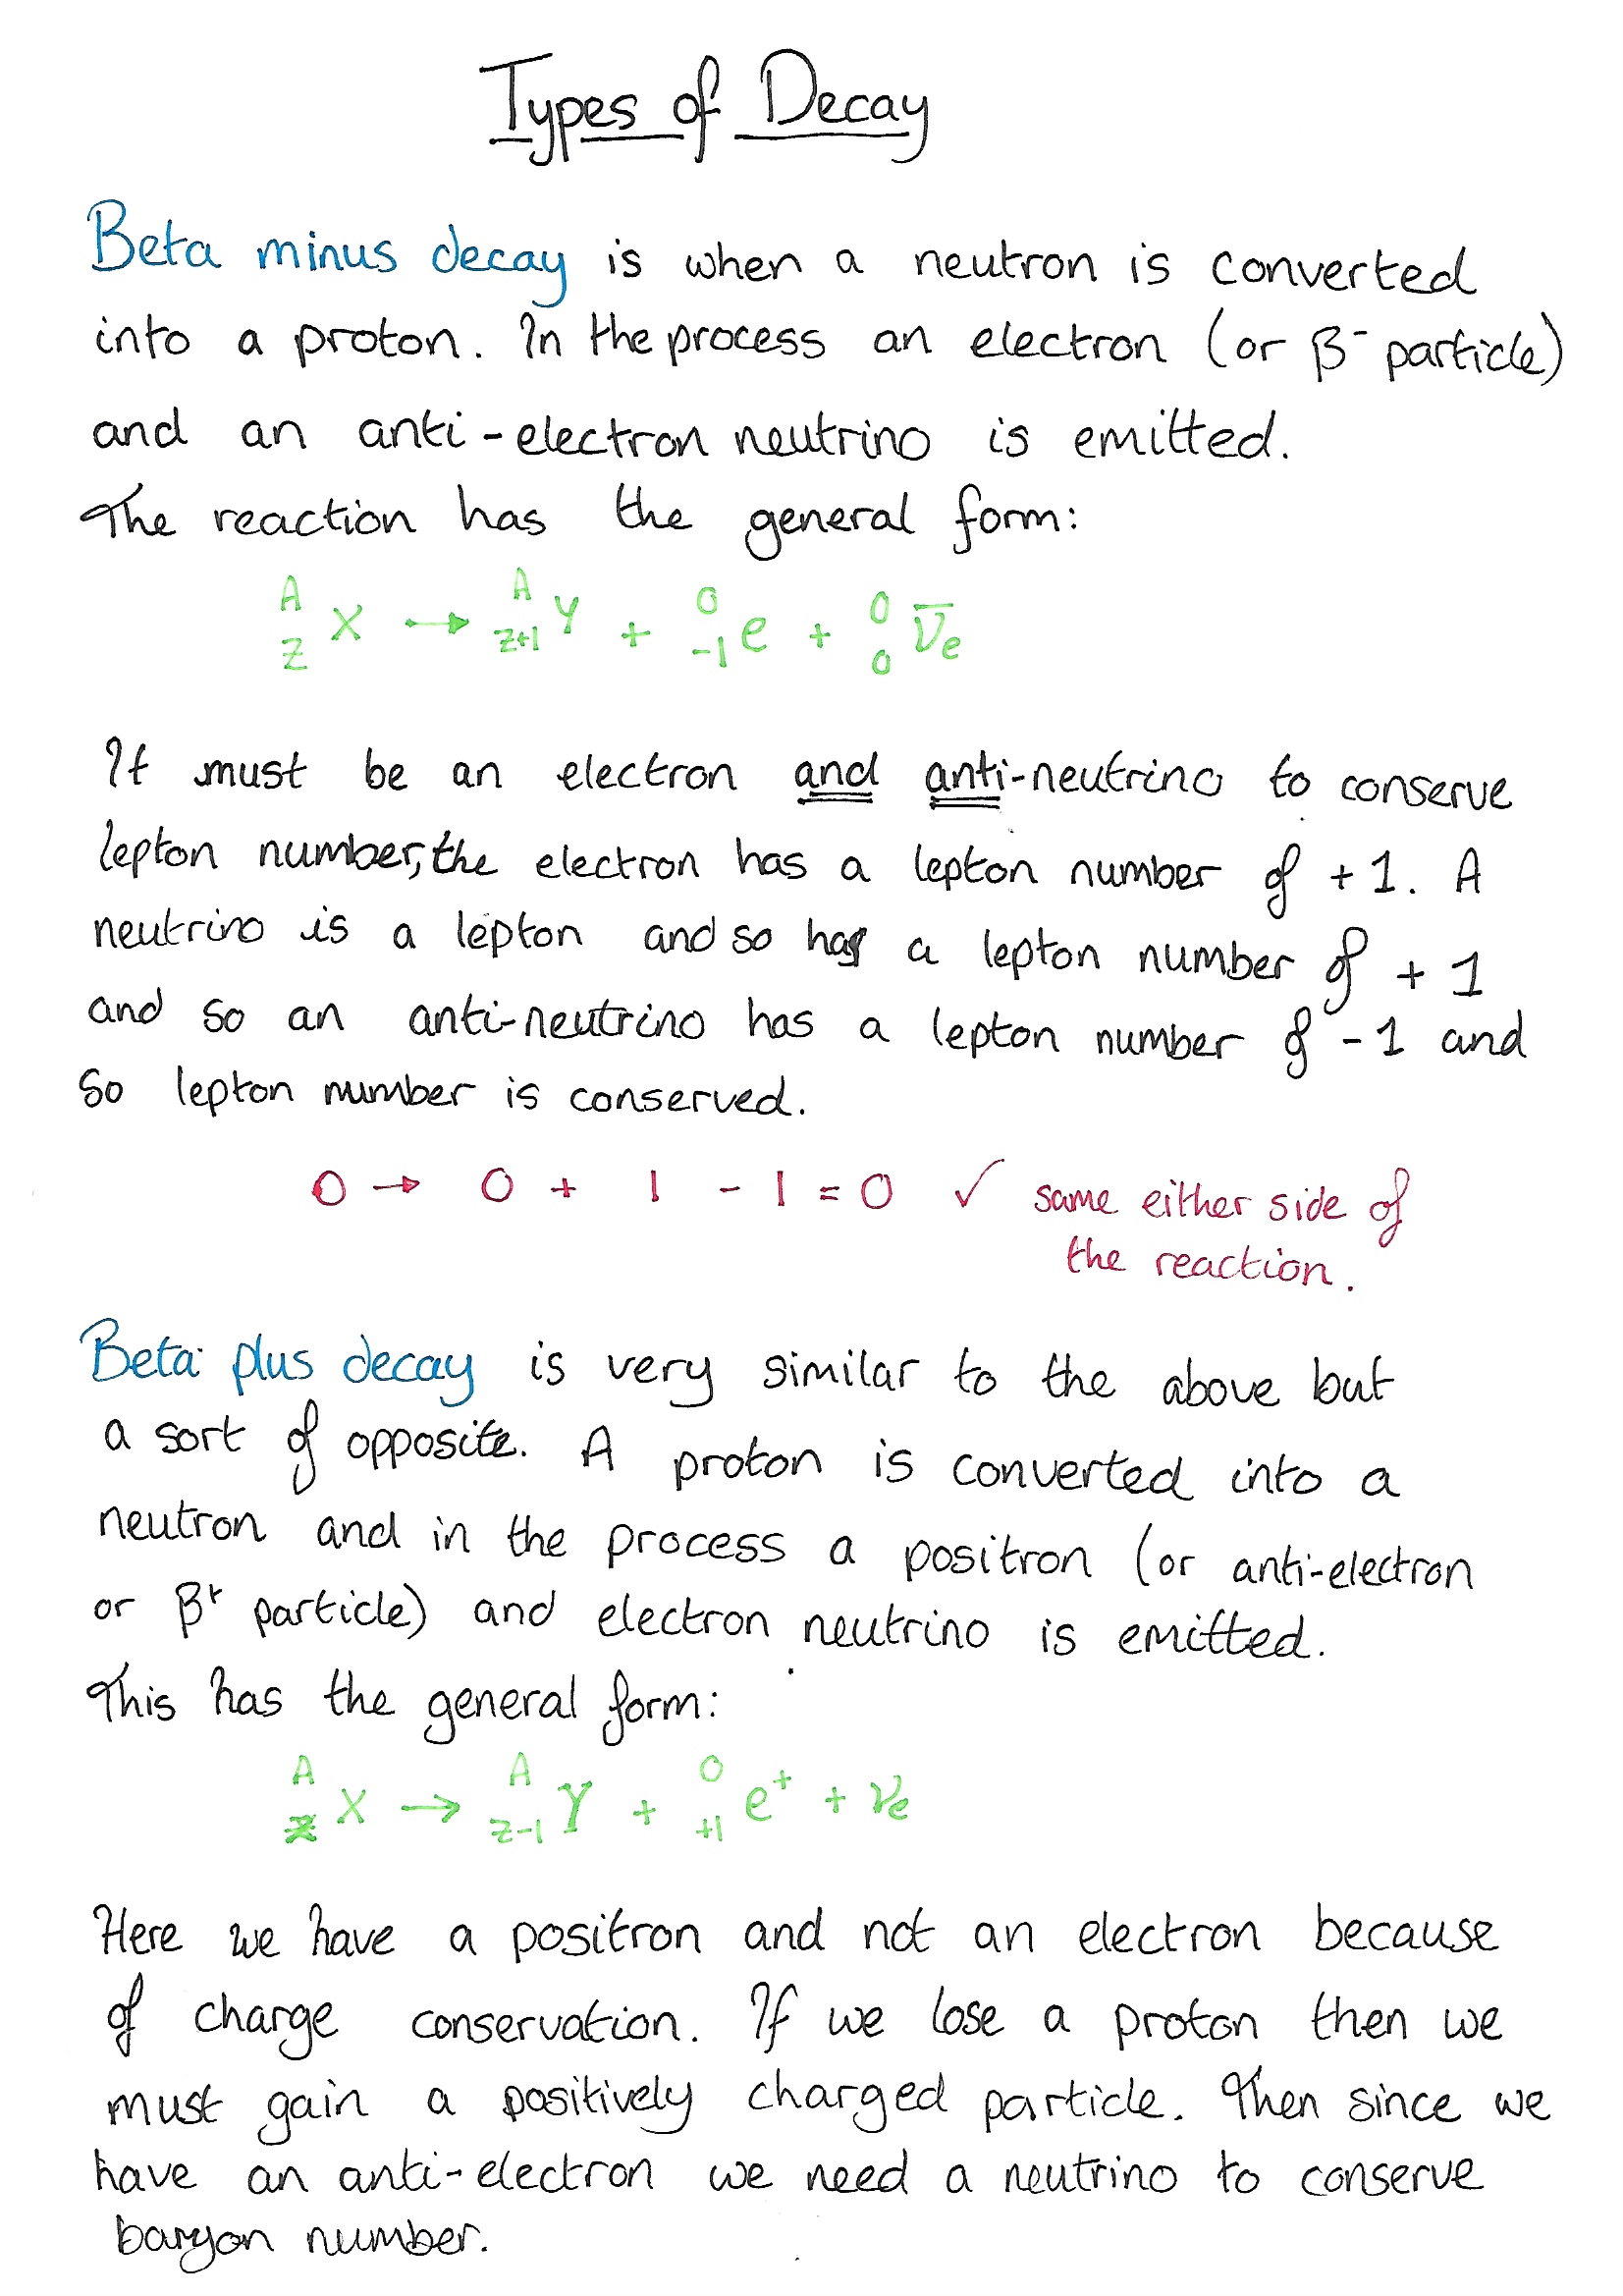 Types of Decay
Beta minus decay is when a neutron is converted
into a proton. In the process an electron (or β⁻ particle)
and an anti-electron neutrino is emitted.
The reaction has the general form:
ᴬ_Z X → ᴬ_Z+1 Y + ⁰_-1 e + ⁰_0 ν̅e
It must be an electron and anti-neutrino to conserve
lepton number, the electron has a lepton number of +1. A
neutrino is a lepton and so has a lepton number of +1
and so an anti-neutrino has a lepton number of -1 and
so lepton number is conserved.
0 → 0 + 1 - 1 = 0 ✓ same either side of
the reaction.
Beta plus decay is very similar to the above but
a sort of opposite. A proton is converted into a
neutron and in the process a positron (or anti-electron
or β⁺ particle) and electron neutrino is emitted.
This has the general form:
ᴬ_Z X → ᴬ_Z-1 Y + ⁰_+1 e⁺ + νe
Here we have a positron and not an electron because
of charge conservation. If we lose a proton then we
must gain a positively charged particle. Then since we
have an anti-electron we need a neutrino to conserve
baryon number.